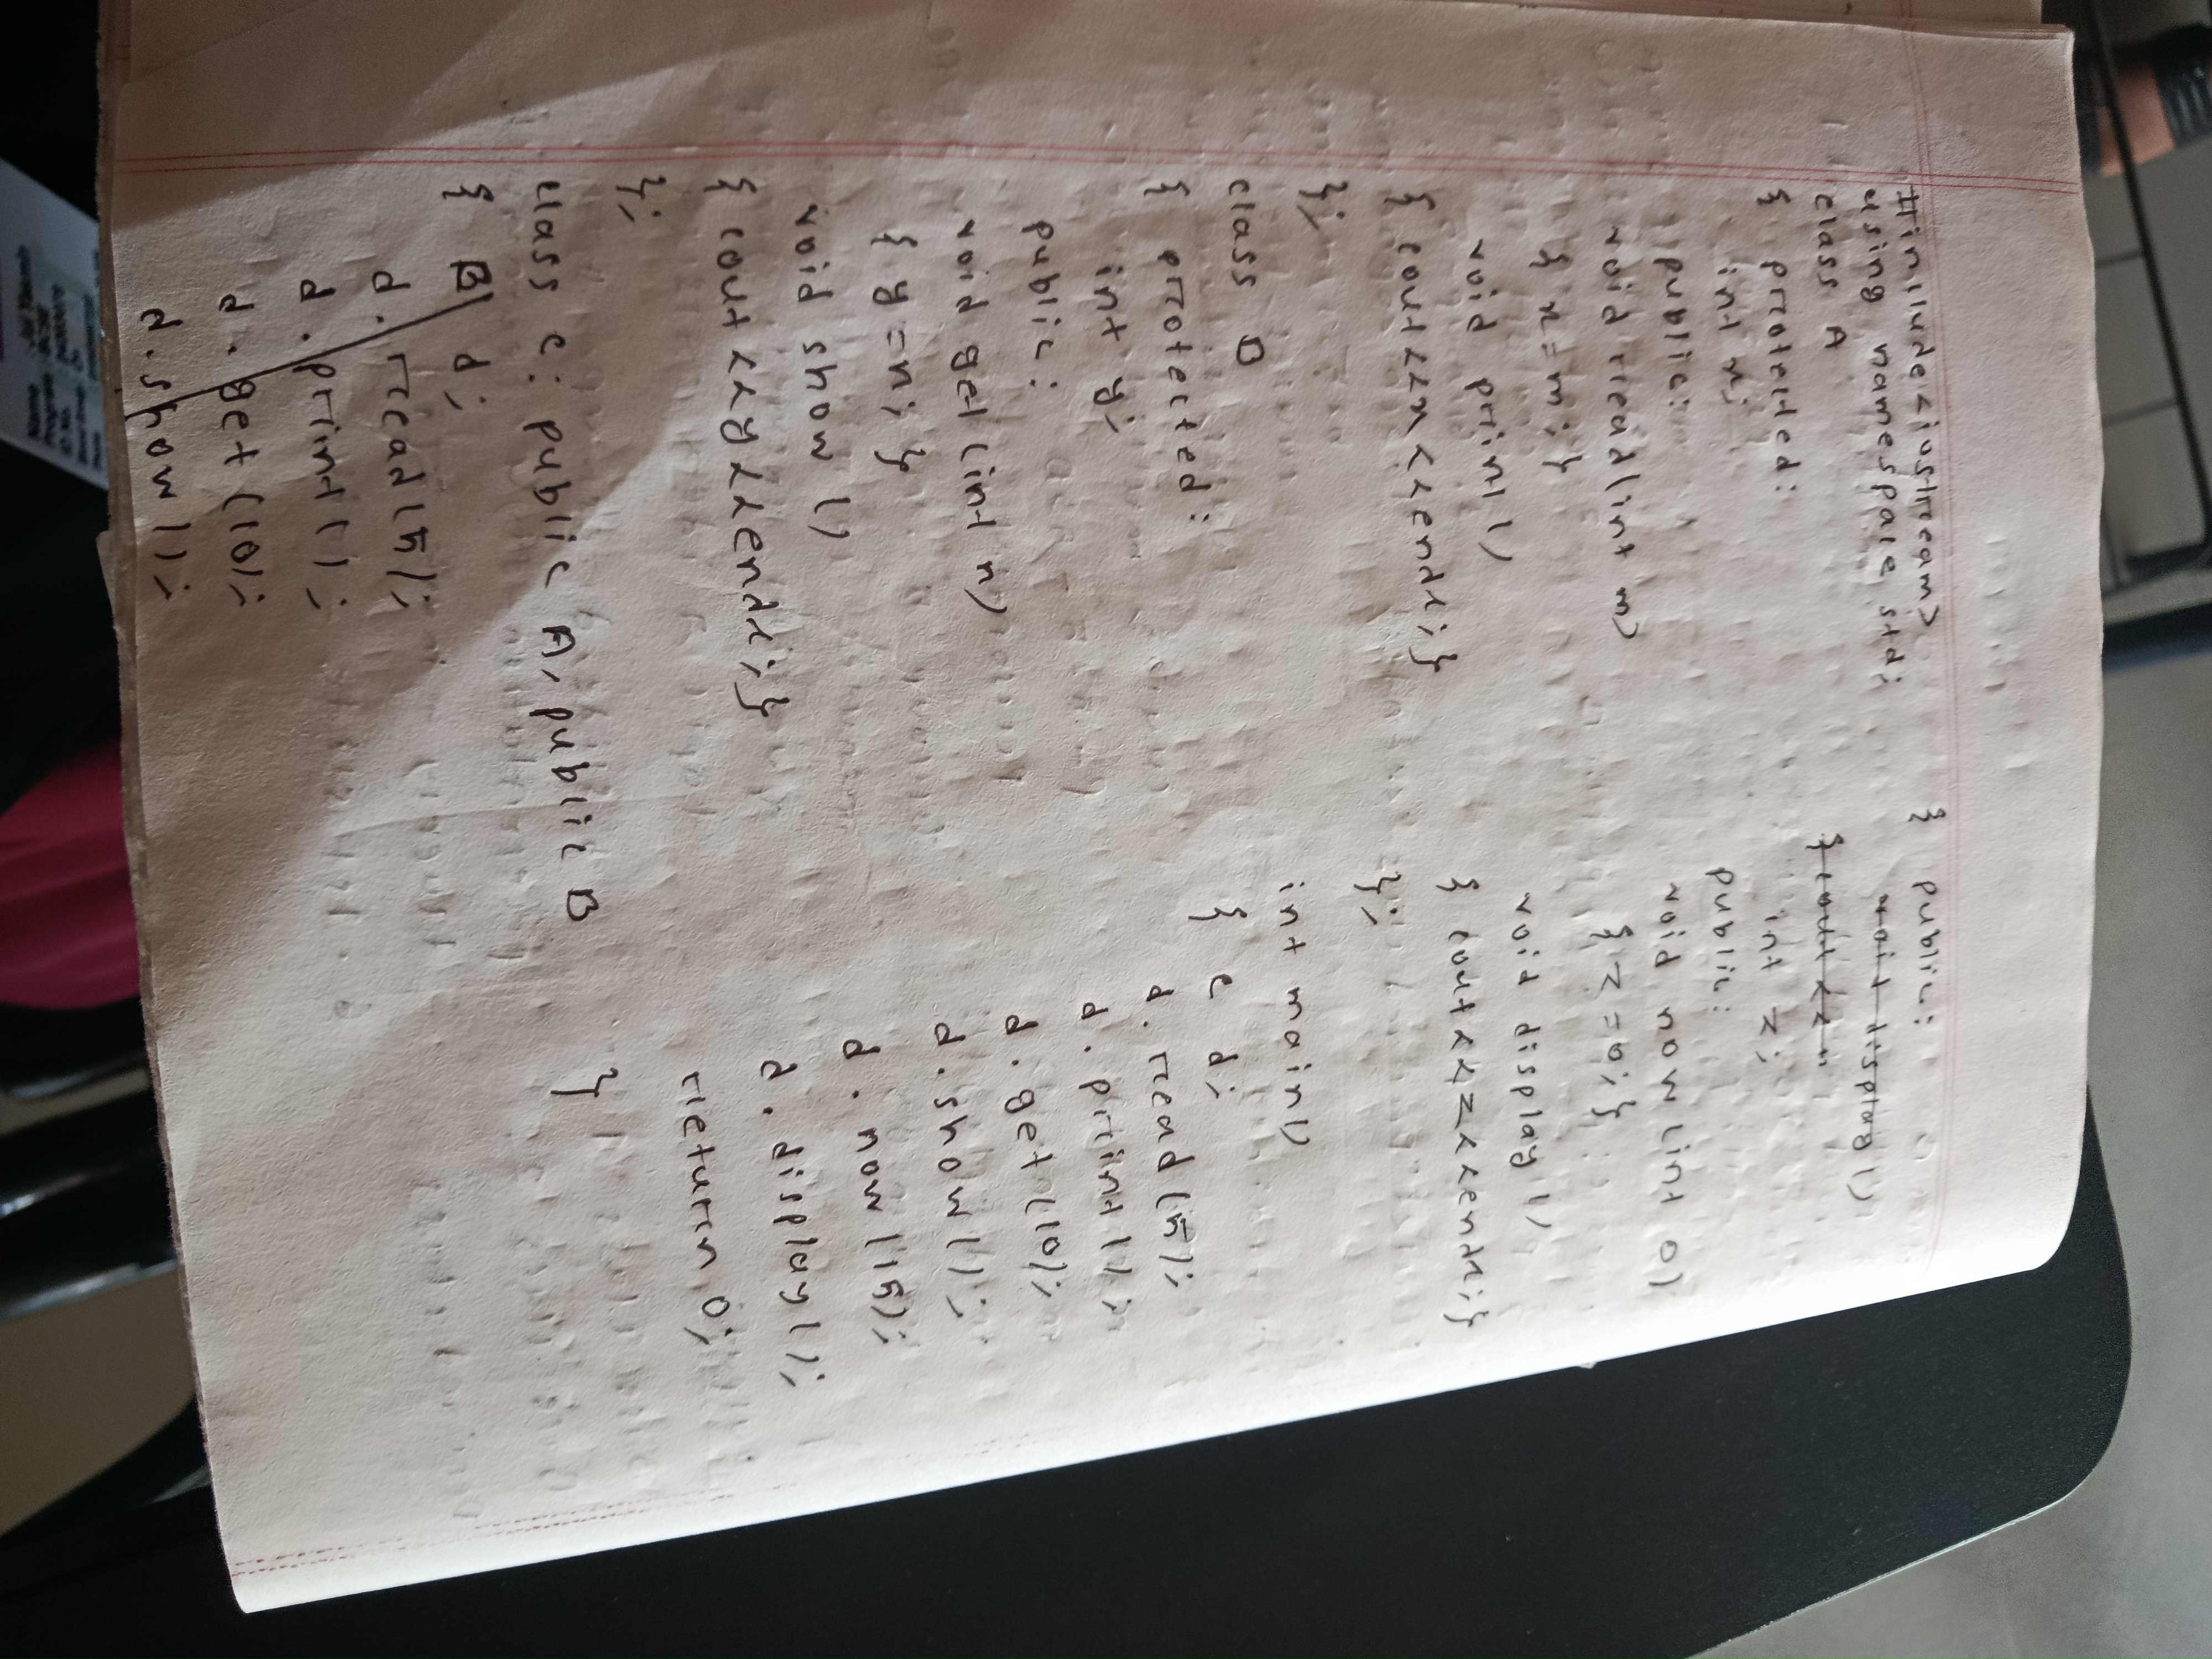 #include<iostream>
using namespace std;
class A
{ protected:
int x;
public:
void read(int m)
{ x=m; }
void print()
{ cout<<x<<endl;}
};
class B
{ protected:
int y;
public:
void get(int n)
{ y=n; }
void show()
{ cout<<y<<endl;}
};
class C: public A, public B
{ B d;
d. read(5);
d. print();
d. get(10);
d. show();
{ public:
void display()
{ cout<<
int z;
public:
void now(int o)
{ z=o; }
void display()
{ cout<<z<<endl;}
};
int main()
{ C d;
d. read(5);
d. print();
d. get(10);
d. show();
d. now(15);
d. display();
return 0;
}
Name